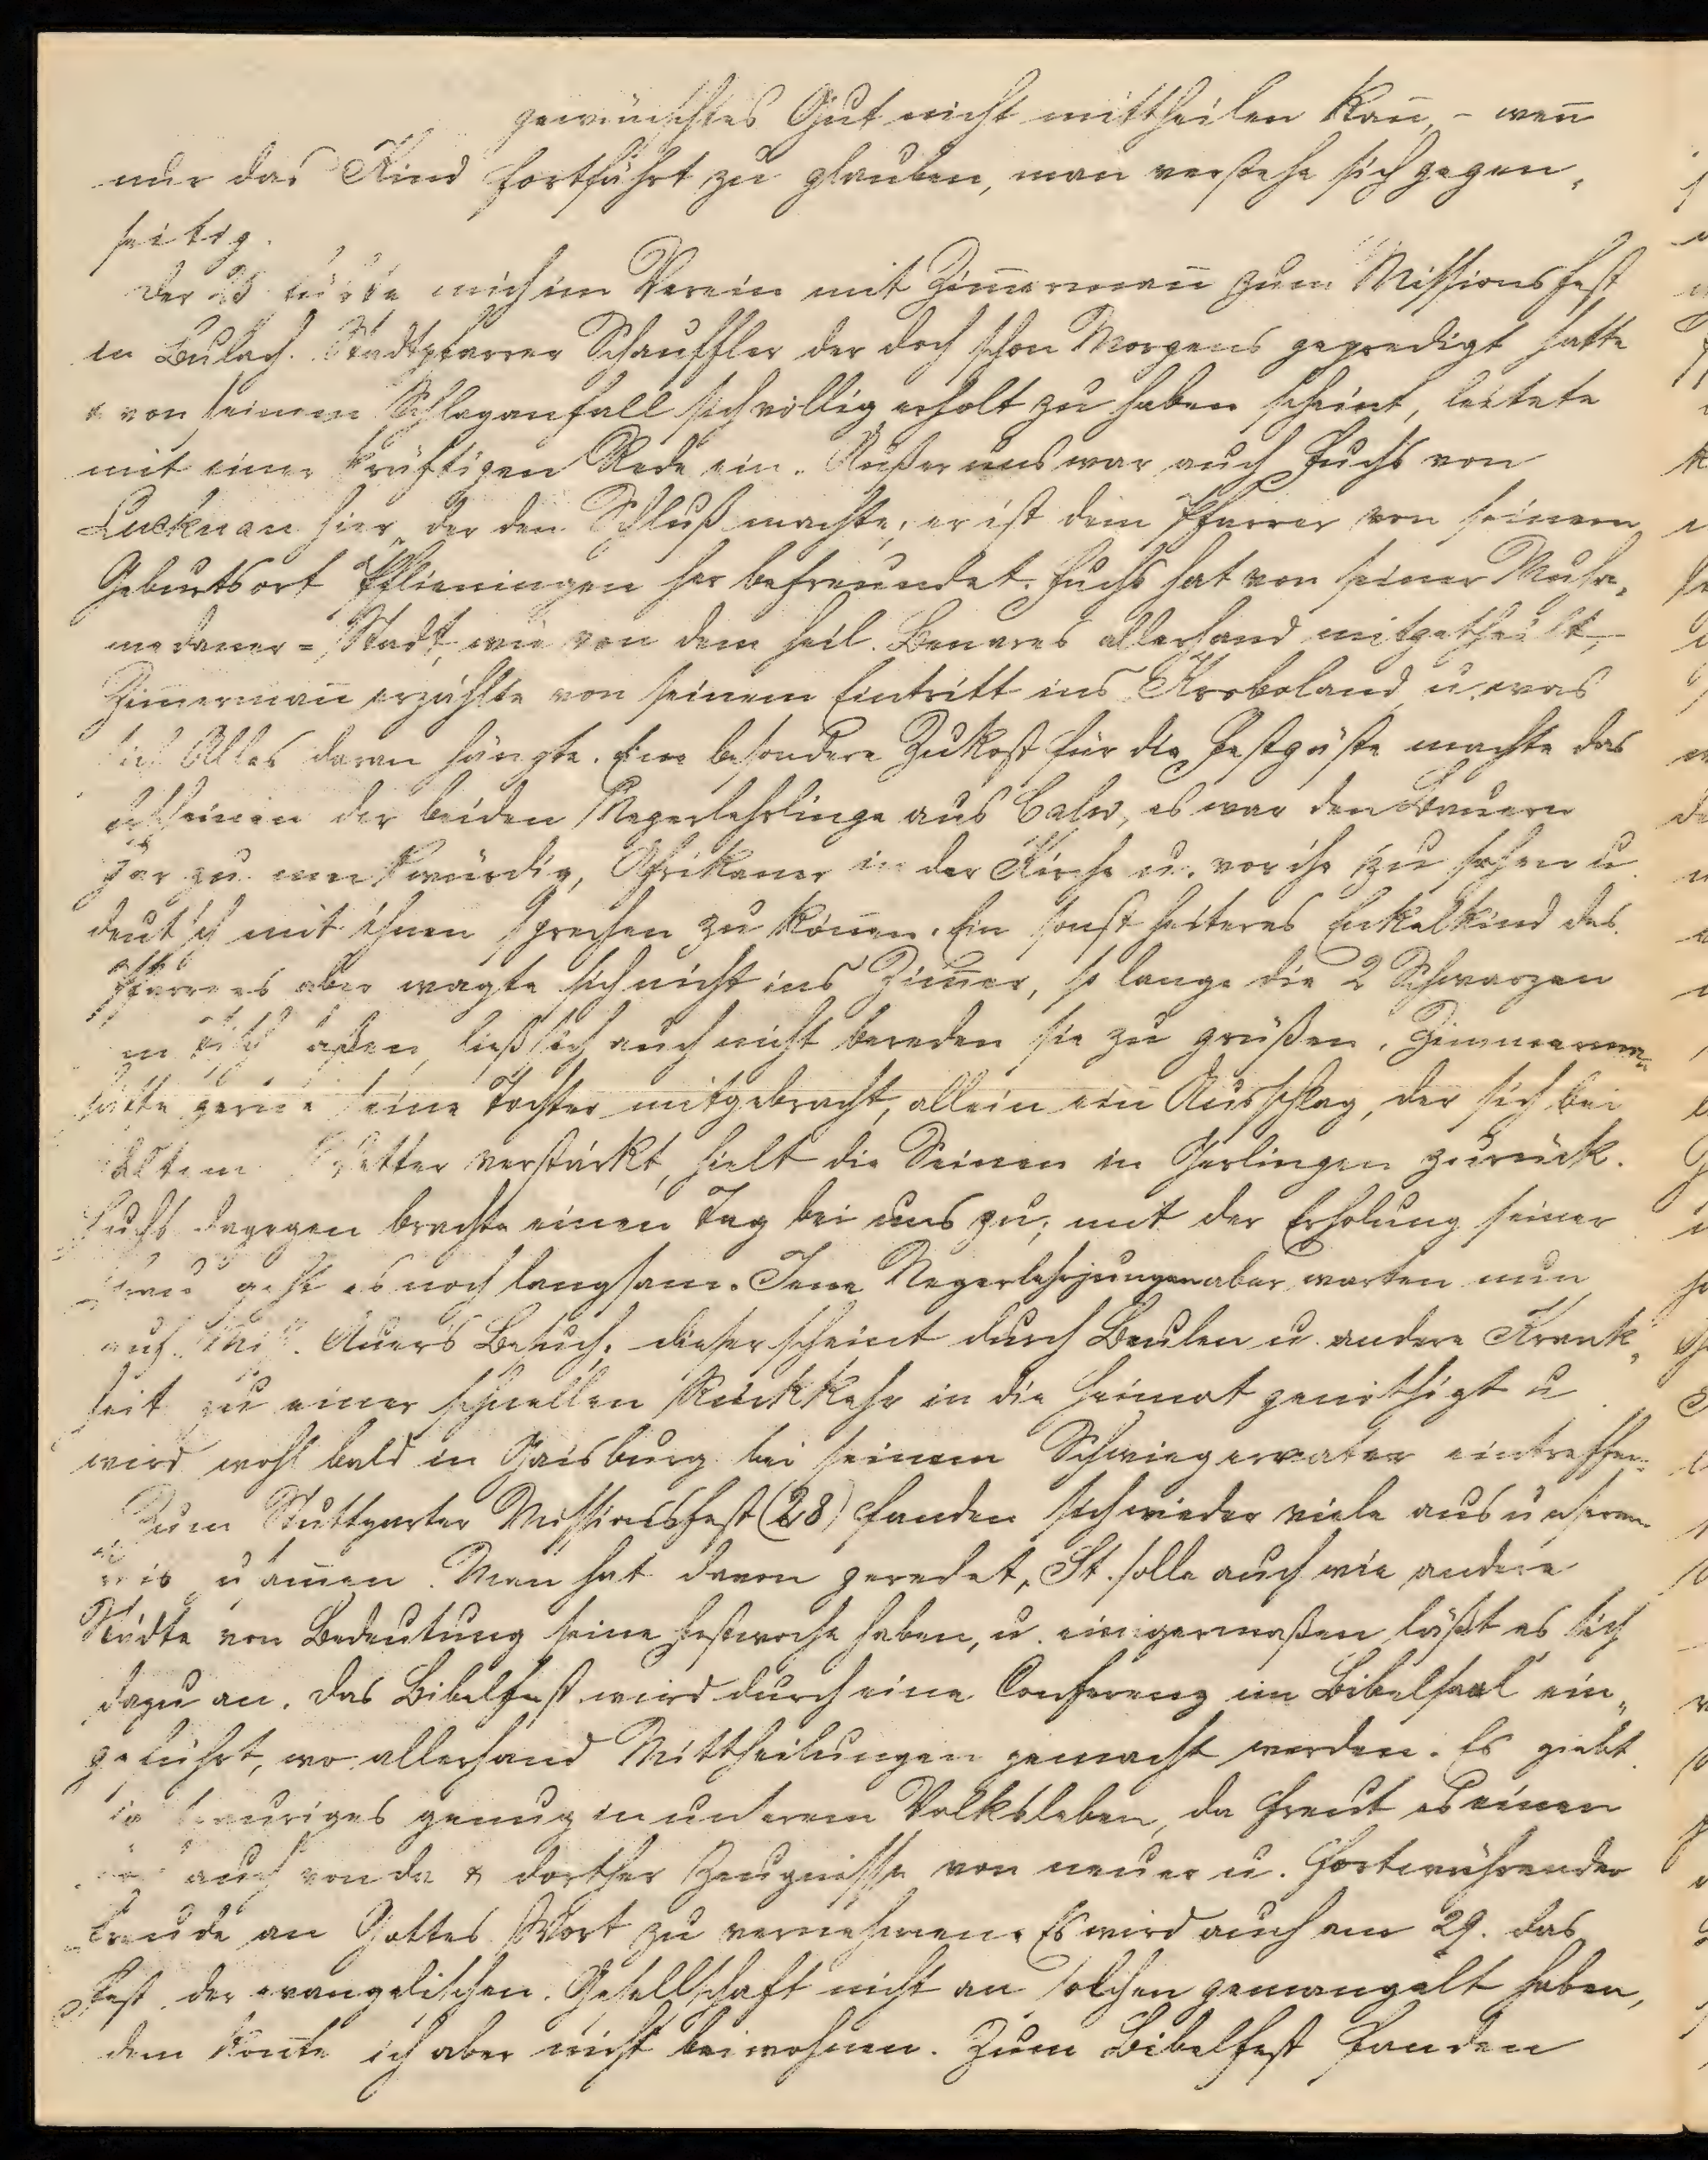 gewünschtes Gut nicht mittheilen kan̄, – wen̄
nur das Kind fortfährt zu glauben, man verstehe sich gegen„
seitig.
Der 25 führte mich im Verein mit Zim̄erman̄ zum Missionsfest
in Bulach. Stadtpfarrer Schauffler der doch schon Morgens gepredigt hatte
& von seinem Schlaganfall sich völlig erholt zu haben scheint, leitete
mit einer kräftigen Rede ein. Außer uns war auch Fuchs von
Lucknau hier, der den Schluß machte; er ist dem Pfarrer von seinem
Geburtsort Pflieningen her befreundet. Fuchs hat von seiner Muha„
medaner=Stadt, wie von dem heil. Benares allerhand mitgetheilt,
Zim̄erman̄ erzählte von seinem Eintritt ins Kroboland, u. was
sich Alles daran hängte. Eine besondere Zukost für die Festgäste machte das
erscheinen der beiden Negerlehrlinge aus Calw, es war den Bauern
gar zu merkwürdig, Afrikaner in der Kirche u. vor ihr zu sehen u.
deutsch mit ihnen sprechen zu kön̄en. Ein sonst heiteres Enkelkind des
Pfarrers aber wagte sich nicht ins Zim̄er, so lange die 2 Schwarzen
am Tisch aßen, ließ sich auch nicht bereden sie zu grüßen. Zimmermann
hätte gerne seine Tochter mitgebracht, allein ein Ausschlag, der sich bei
kaltem Wetter verstärkt, hielt die Seinen in Gerlingen zurück.
Fuchs dagegen brachte einen Tag bei uns zu; mit der Erholung seiner
Frau geht es noch langsam. Jene Negerlehrjungen aber warten nun
auf Miss. Auer's Besuch; dieser scheint durch Beulen u. andere Krank„
heit zu einer schnellen Rückkehr in die Heimat genöthigt u
wird wohl bald in Gaisburg bei seinem Schwiegervater eintreffen.
Zum Stuttgarter Missionsfest (28) fanden sich wieder viele aus unserm
Kreis zusam̄en. Man hat davon geredet, St. solle auch wie andere
Städte von Bedeutung seine Festwoche haben, u. einigermaßen läßt es sich
dazu an. Das Bibelfest wird durch eine Conferenz im Bibelsaal ein„
geführt, wo allerhand Mittheilungen gemacht werden. Es giebt
ja trauriges genug in unserem Volksleben, da freut es einen
auch von da & dorther Zeugnisse von neuer u. fortwährender
Freude an Gottes Wort zu vernehmen. Es wird auch am 29. das
Fest der evangelischen Gesellschaft nicht an solchen gemangelt haben,
dem kon̄te ich aber nicht beiwohnen. Zum Bibelfest fanden